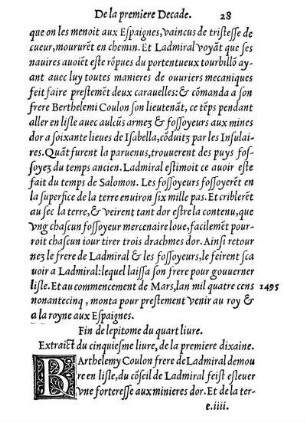 De la premiere Decade. 28
que on les menoit aux Espaignes, vaincus de tristesse de
cueur, moururẽt en chemin. Et Ladmiral voyãt que ses
nauires auoiẽt este rõpues du portentueux tourbillõ ay-
ant auec luy toutes manieres de ouuriers mecaniques
feit faire prestemẽt deux carauelles: & cõmanda a son
frere Berthelemi Coulon son lieutenãt, ce tẽps pendant
aller en lisle auec aulcũs armez & fossoyeurs aux mines
dor a soixante lieues de Isabella, cõduitz par les Insulai-
res. Quãt furent la paruenus, trouuerent des puys fos-
soyez du temps ancien. Ladmiral estimoit ce auoir este
fait du temps de Salomon. Les fossoyeurs fossoyerẽt en
la superfice de la terre enuiron six mille pas. Et criblerẽt
au sec la terre, & veirent tant dor estre la contenu, que
vng chascun fossoyeur mercenaire loue, facilemẽt pour-
roit chascun iour tirer trois drachmes dor. Ainsi retour
nez le frere de Ladmiral & les fossoyeurs, le feirent sca
uoir a Ladmiral: lequel laissa son frere pour gouuerner
lisle. Et au commencement de Mars, lan mil quatre cens
nonantecinq, monta pour prestement venir au roy & 1495
a la royne aux Espaignes.
Fin de lepitome du quart liure.
Extraict du cinquiesme liure, de la premiere dixaine.
BArthelemy Coulon frere de Ladmiral demou
re en lisle, du cõseil de Ladmiral feist esleuer
vne forteresse aux minieres dor. Et de la ter-
e.iiii.